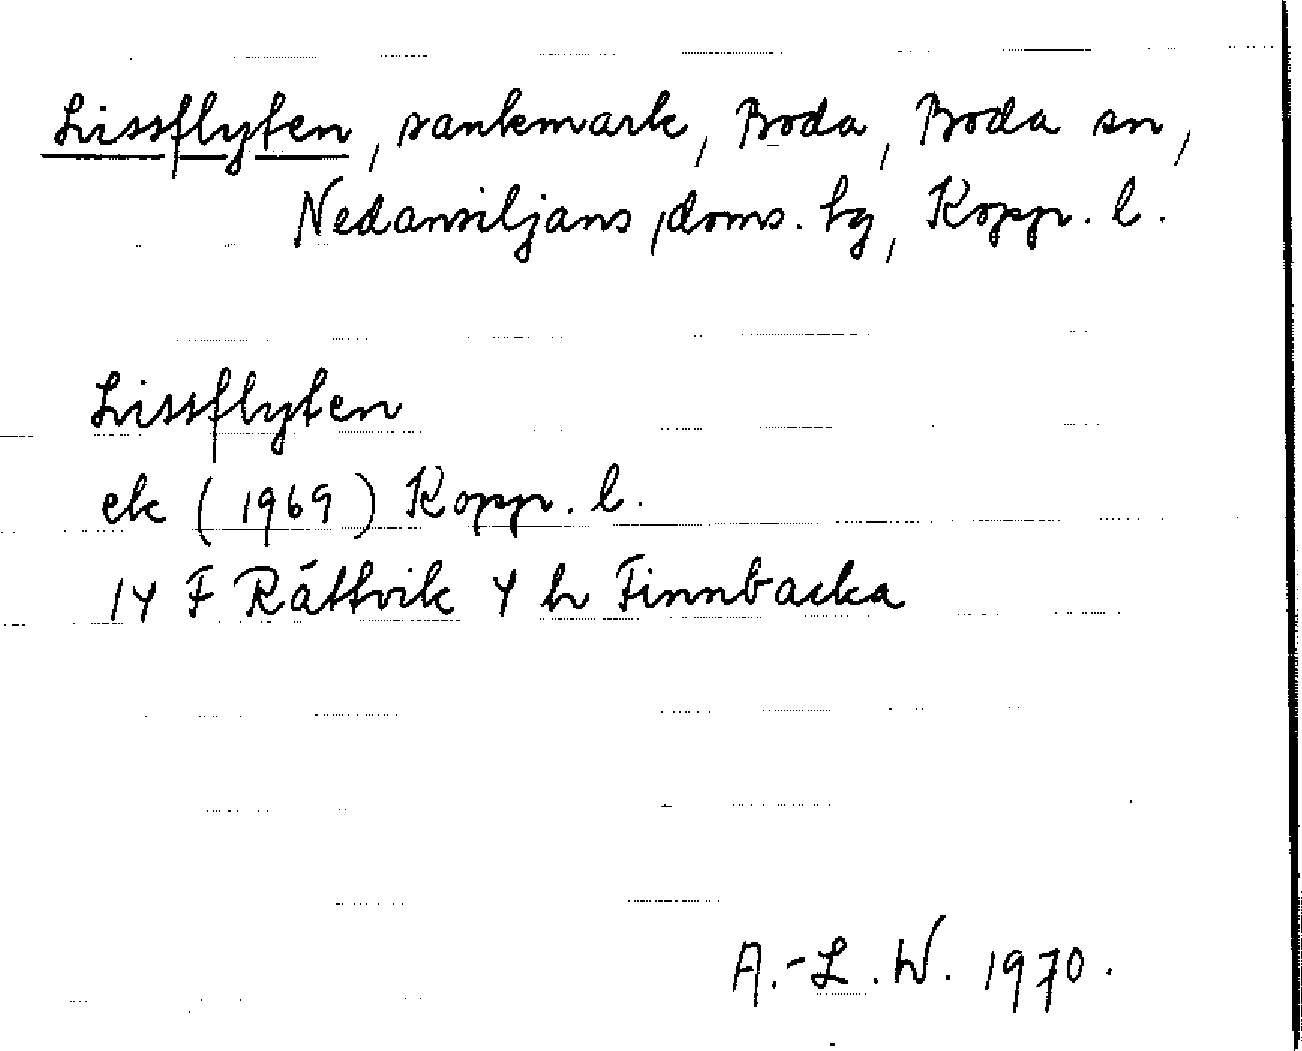 Lissflyten, sankmark, Boda, Boda sn,
Nedansiljans doms. hg, Kopp. l.
Lissflyten
ek (1969) Kopp. l.
14 F Rättvik 4 h Finnbacka
A.-L. W. 1970.